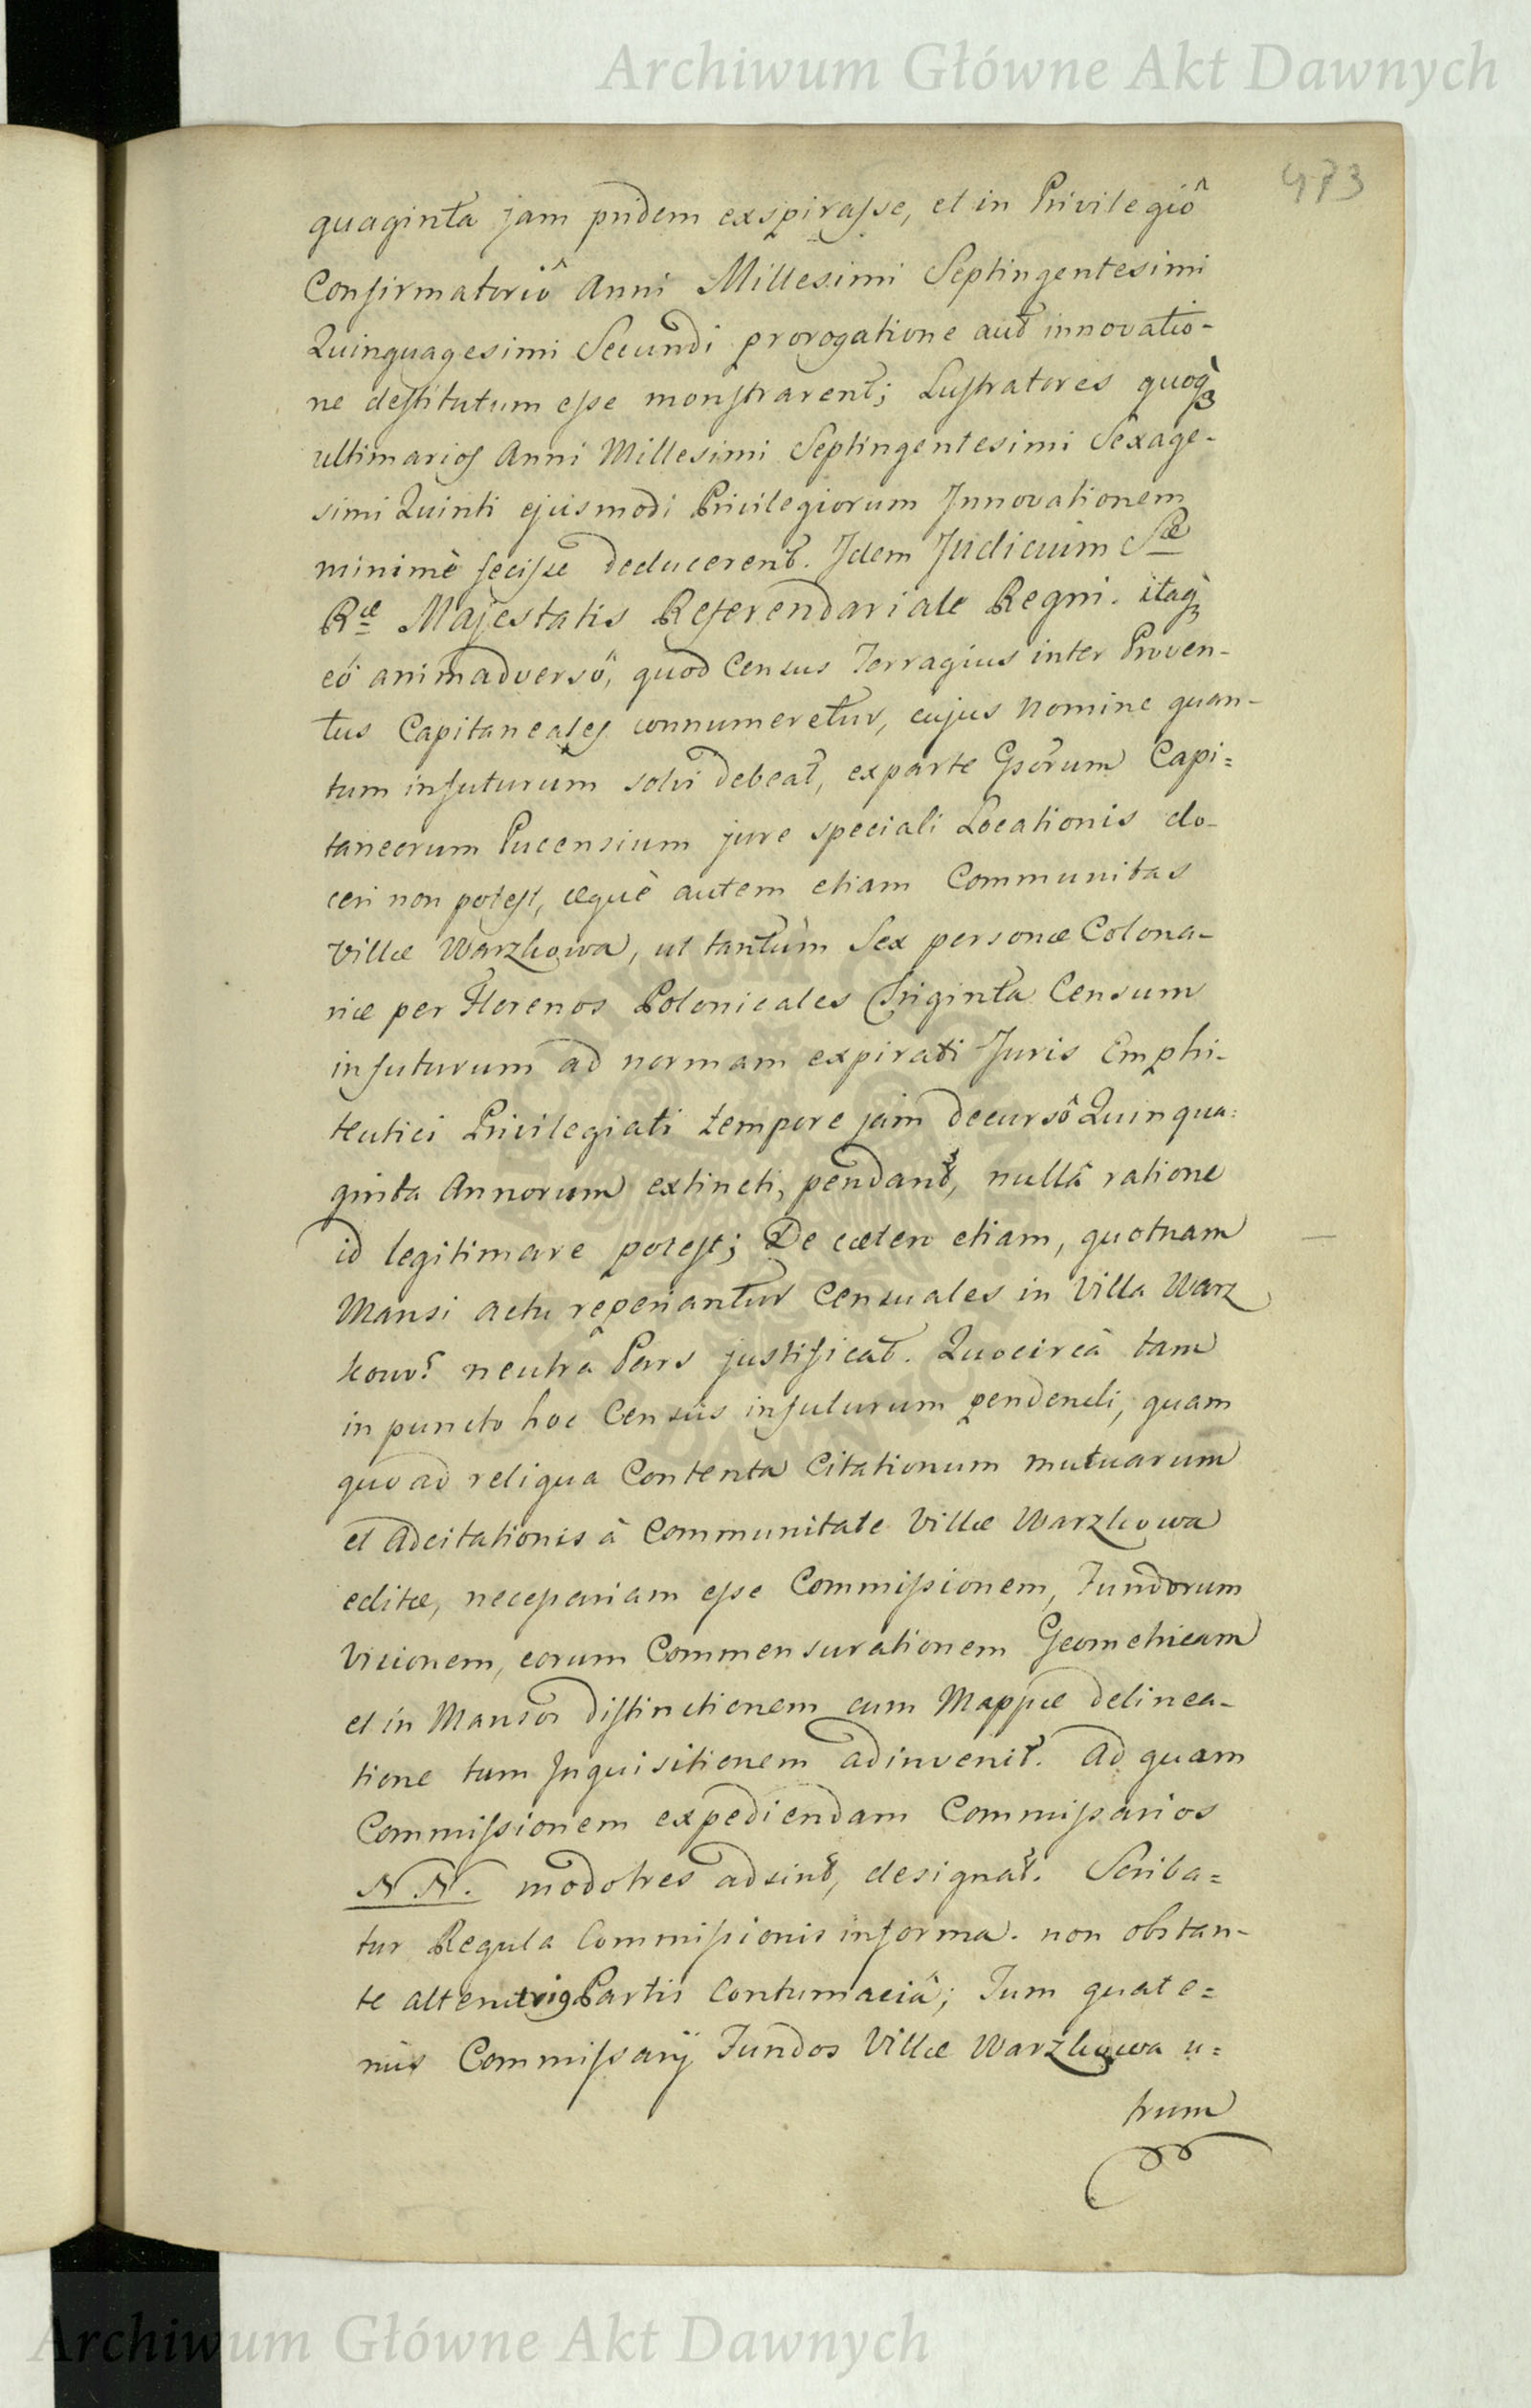 Archiwum Główne Akt Dawnych
473
quaginta jam pridem exspirasse, et in Privilegiô
Confirmatoriô Anni Millesimi Septingentesimi
Quinquagesimi Secundi prorogatione aut innovatio-
ne destitutum esse monstrarent; Lustratores quoq
ultimarios Anni Millesimi Septingentesimi Sexage-
simi Quinti ejusmodi Privilegiorum Innovationem
minimè fecisse deducerent. Idem Judicium Sæ
Ræ Majestatis Referendariale Regni. itaq
eô animadversô, quod Census Terragius inter Proven-
tus Capitaneales connumeretur, cujus nomine quan-
tum infuturum solvi debeat, exparte Gsorum Capi=
taneorum Pucensium jure speciali Locationis do-
ceri non potest, æquè autem etiam Communitas
Villæ Warzkowa, ut tantùm Sex personæ Colona-
riæ per Florenos Polonicales Triginta Censum
infuturum ad normam expirati Juris Emphi-
teutici Privilegiati tempore jam decursô Quinqua=
ginta Annorum extincti, pendant, nullâ ratione
id legitimare potest; De cætero etiam, quotnam
Mansi actu reperiantur Censuales in Villa Warz
kow? neutra Pars justificat. Quocircà tam
in puncto hoc Censûs infuturum pendendi, quam
quo ad reliqua Contenta Citationum mutuarum
et Adcitationis à Communitate Villæ Warzkowa
editæ, necessariam esse Commissionem, Fundorum
Visionem, eorum Commensurationem Geometricam
et in Mansos distinctionem cum Mappæ delinea-
tione tum Inquisitionem adinvenit. Ad quam
Commissionem expediendam Commissarios
N. N. modo tres adsint, designat. Scriba=
tur Regula Commissionis in forma. non obstan-
te alterutrius Partis Contumaciâ; Tum quate=
nus Commissarij Fundos Villæ Warzkowa u=
trum
Archiwum Główne Akt Dawnych